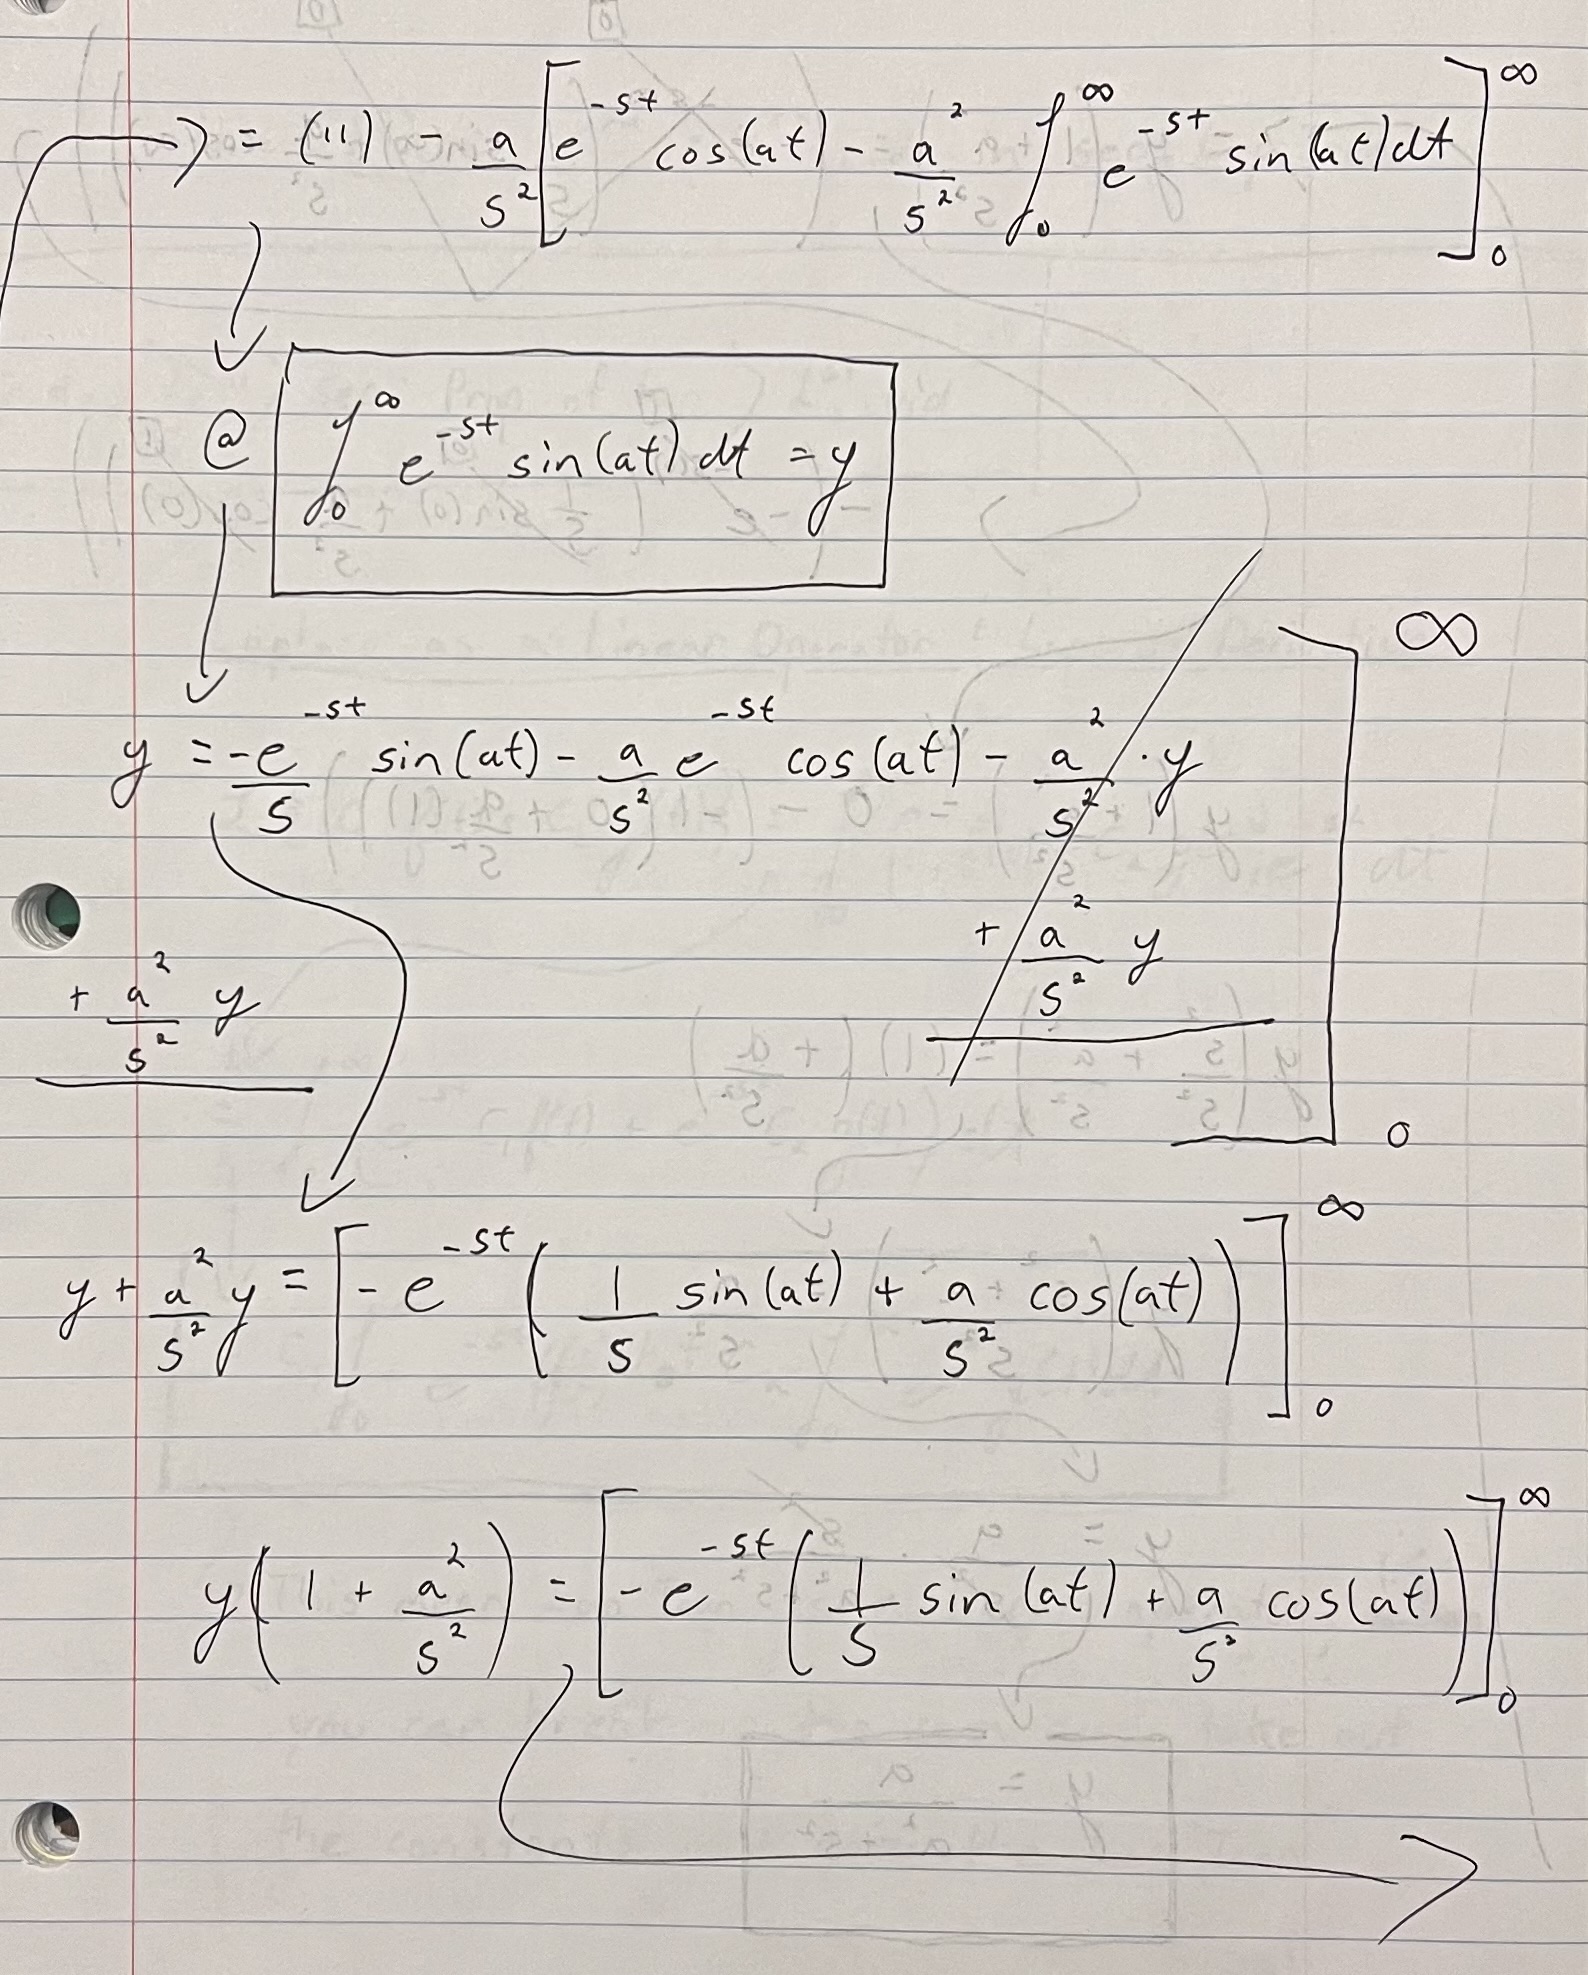 = (11) - a/s² [ e^-st cos(at) - a²/s² ∫₀^∞ e^-st sin(at) dt ]₀^∞
@ ∫₀^∞ e^-st sin(at) dt = y
y = -e^-st/s sin(at) - a/s² e^-st cos(at) - a²/s² · y ]₀^∞
+ a²/s² y + a²/s² y
y + a²/s² y = [ -e^-st ( 1/s sin(at) + a/s² cos(at) ) ]₀^∞
y ( 1 + a²/s² ) = [ -e^-st ( 1/s sin(at) + a/s² cos(at) ) ]₀^∞